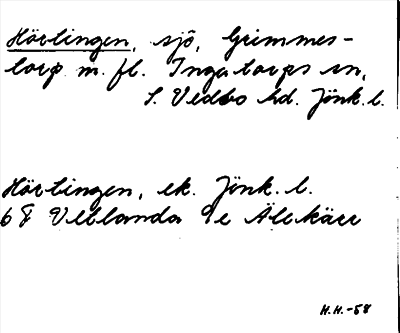 Hörlingen, sjö, Grimmes-
torp m. fl. Ingatorps sn,
S. Vedbo hd. Jönk. l.
Hörlingen, ek. Jönk. l.
6 F Vetlanda 9e Älekärr
H.H.-58